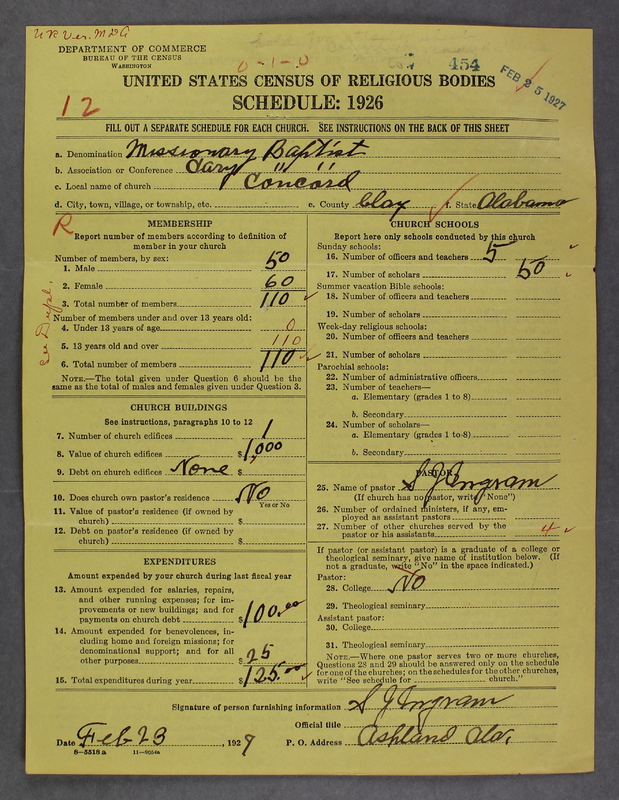 U R Ver. M D G
DEPARTMENT OF COMMERCE
BUREAU OF THE CENSUS
WASHINGTON
0-1-0
454
FEB 25 1927
UNITED STATES CENSUS OF RELIGIOUS BODIES
12
SCHEDULE: 1926
FILL OUT A SEPARATE SCHEDULE FOR EACH CHURCH. SEE INSTRUCTIONS ON THE BACK OF THIS SHEET
a. Denomination Missionary Baptist
b. Association or Conference Cary " "
c. Local name of church Concord
d. City, town, village, or township, etc. e. County Clay f. State Alabama
R
MEMBERSHIP
Report number of members according to definition of
member in your church
Number of members, by sex:
1. Male 50
2. Female 60
3. Total number of members 110
Number of members under and over 13 years old:
4. Under 13 years of age 0
5. 13 years old and over 110
6. Total number of members 110
NOTE.—The total given under Question 6 should be the
same as the total of males and females given under Question 3.
CHURCH BUILDINGS
See instructions, paragraphs 10 to 12
7. Number of church edifices 1
8. Value of church edifices $1,000
9. Debt on church edifices None $
10. Does church own pastor's residence No
Yes or No
11. Value of pastor's residence (if owned by
church) $
12. Debt on pastor's residence (if owned by
church) $
EXPENDITURES
Amount expended by your church during last fiscal year
13. Amount expended for salaries, repairs,
and other running expenses; for im-
provements or new buildings; and for
payments on church debt $100.00
14. Amount expended for benevolences, in-
cluding home and foreign missions; for
denominational support; and for all
other purposes $25
15. Total expenditures during year $125.00
CHURCH SCHOOLS
Report here only schools conducted by this church
Sunday schools:
16. Number of officers and teachers 5
17. Number of scholars 50
Summer vacation Bible schools:
18. Number of officers and teachers
19. Number of scholars
Week-day religious schools:
20. Number of officers and teachers
21. Number of scholars
Parochial schools:
22. Number of administrative officers
23. Number of teachers—
a. Elementary (grades 1 to 8)
b. Secondary
24. Number of scholars—
a. Elementary (grades 1 to 8)
b. Secondary
PASTOR
25. Name of pastor S J Ingram
(If church has no pastor, write "None")
26. Number of ordained ministers, if any, em-
ployed as assistant pastors
27. Number of other churches served by the
pastor or his assistants 4
If pastor (or assistant pastor) is a graduate of a college or
theological seminary, give name of institution below. (If
not a graduate, write "No" in the space indicated.)
Pastor:
28. College No
29. Theological seminary
Assistant pastor:
30. College
31. Theological seminary
NOTE.—Where one pastor serves two or more churches,
Questions 28 and 29 should be answered only on the schedule
for one of the churches; on the schedules for the other churches,
write "See schedule for church."
Signature of person furnishing information S J Ingram
Official title
Date Feb 23, 1927 P. O. Address Ashland Ala.
8—5518a 11—9054a